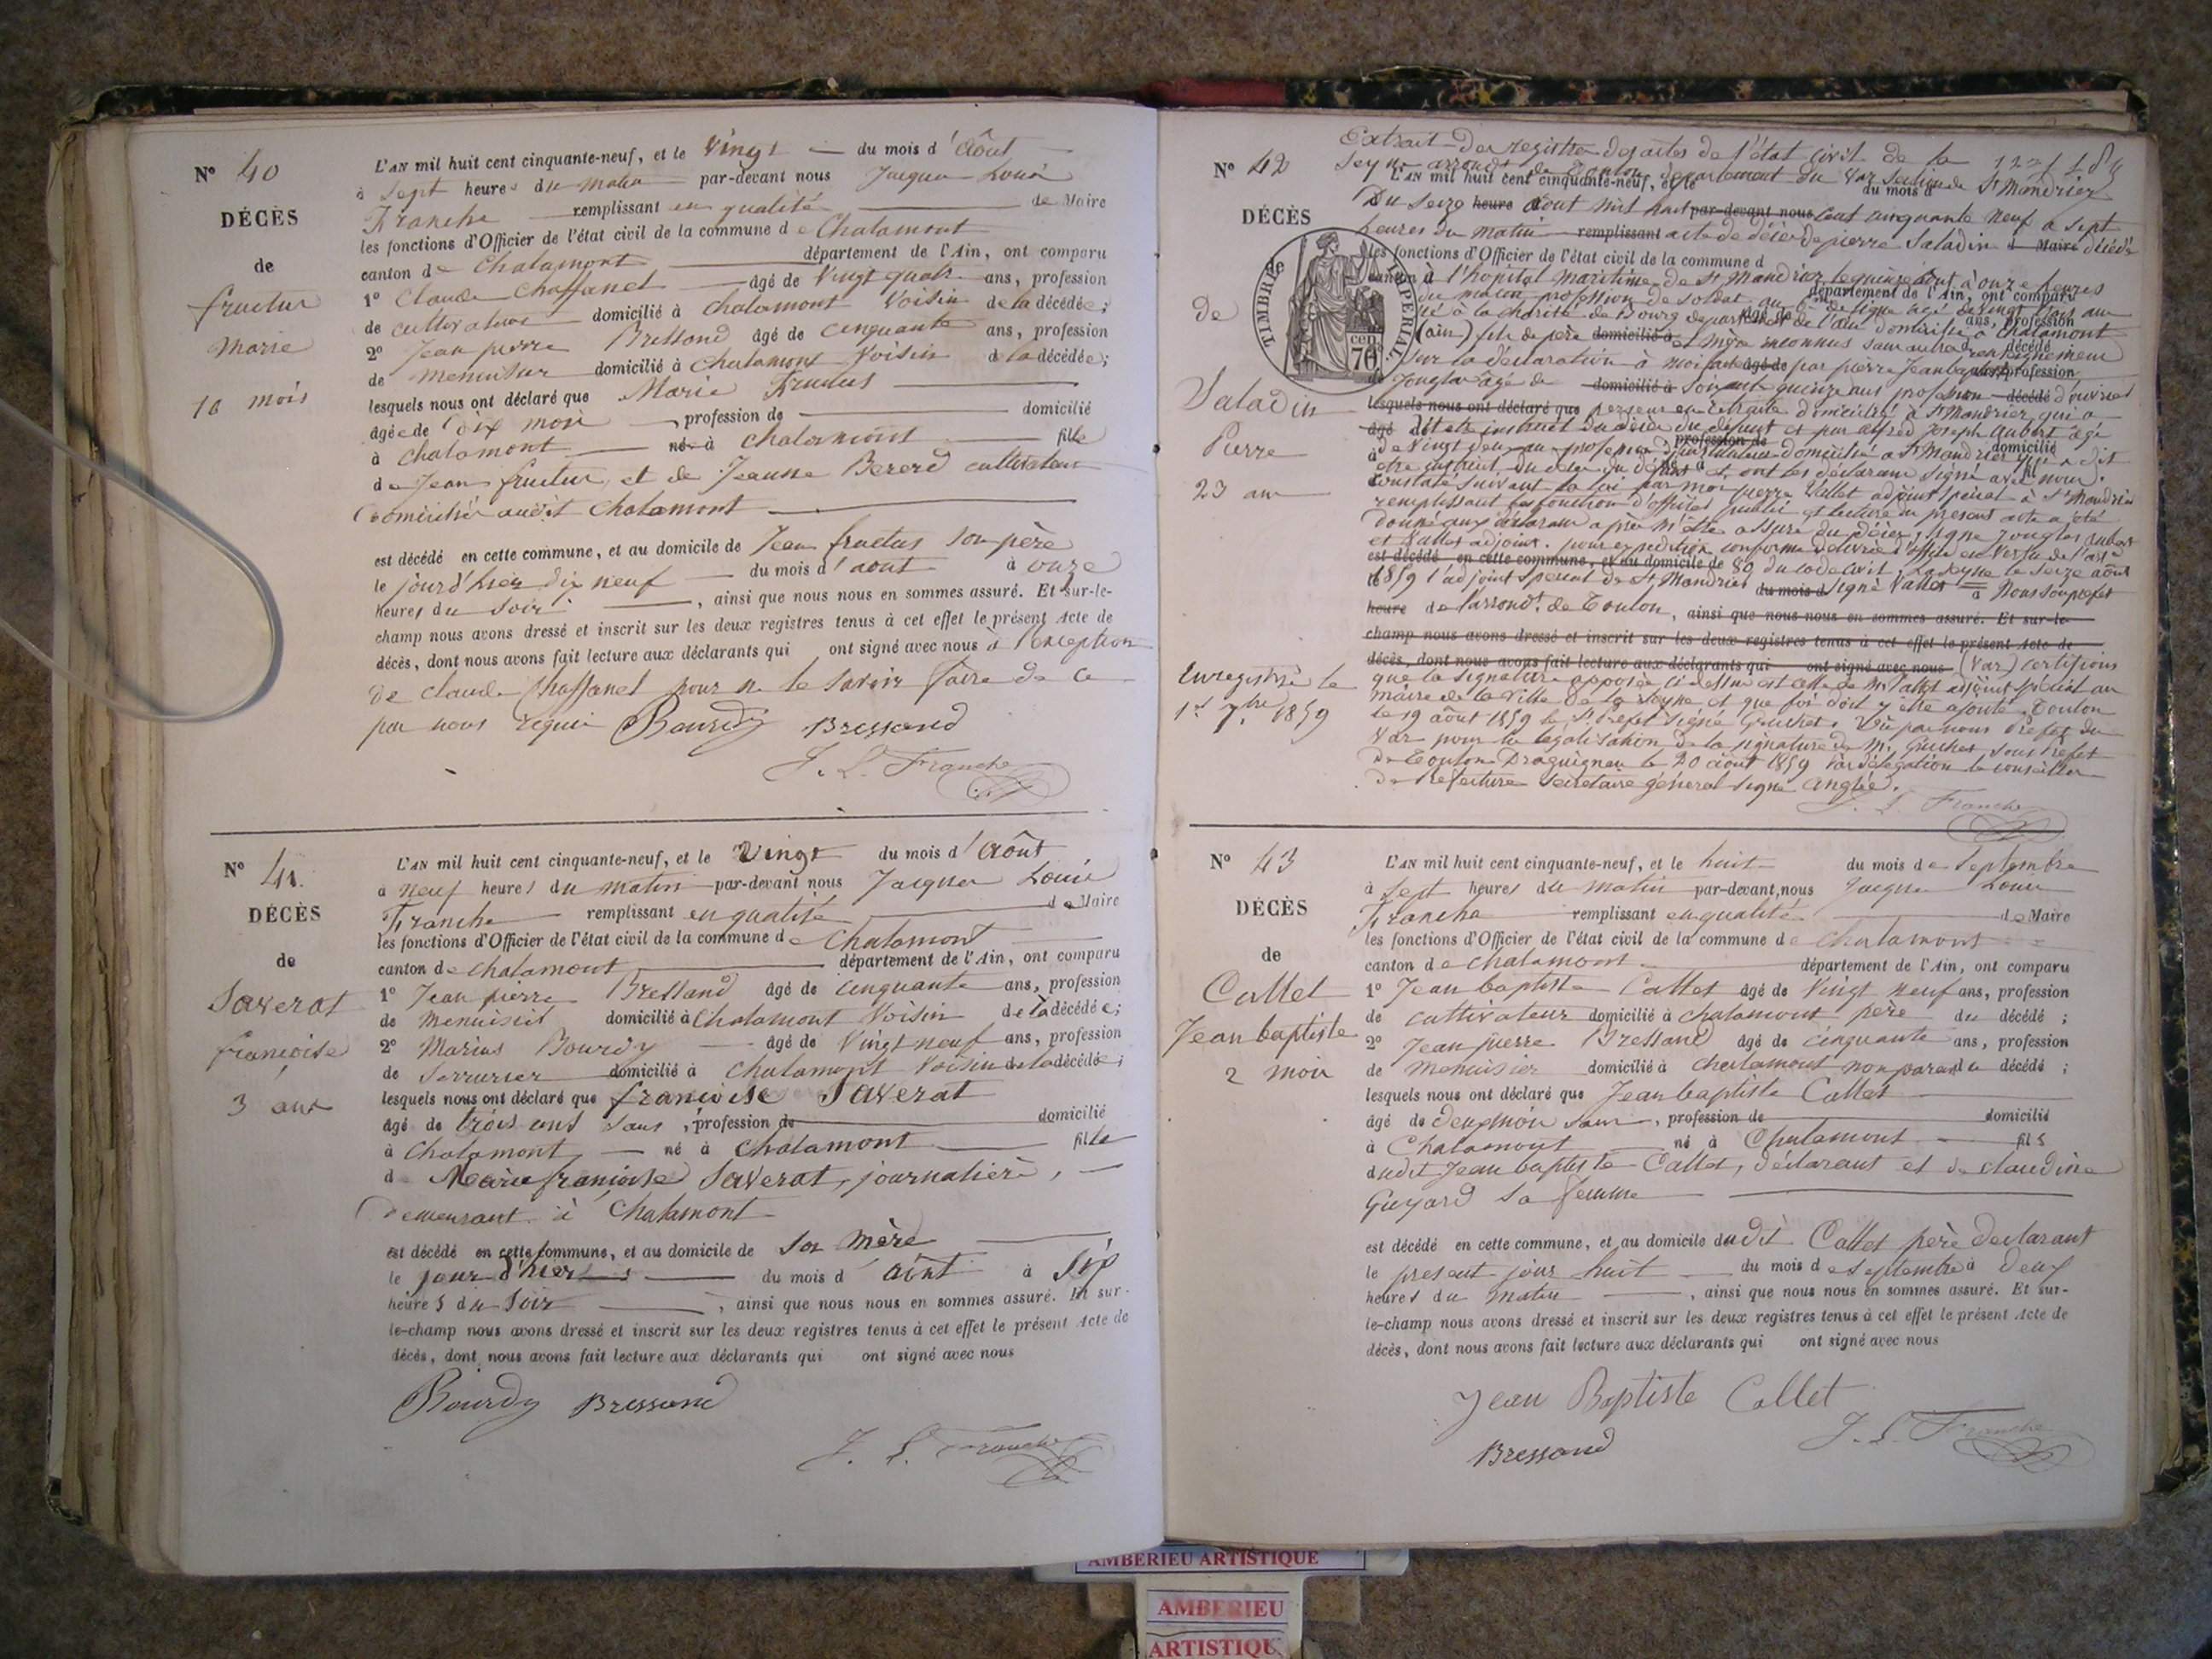 N° 40
DÉCÈS
de
fructus
Marie
10 mois
L'AN mil huit cent cinquante-neuf, et le Vingt du mois d'Aôut
à Sept heures du Matin par-devant nous Jacques Louis
Franche remplissant en qualité de Maire
les fonctions d'Officier de l'état civil de la commune de Chalamont
canton de Chalamont département de l'Ain, ont comparu
1° Claude Chaffanel âgé de Vingt quatre ans, profession
de cultivateur domicilié à Chalamont Voisin de la décédée;
2° Jean pierre Bressand âgé de Cinquante ans, profession
de menuisier domicilié à Chalamont Voisin de la décédée;
lesquels nous ont déclaré que Marie Fructus
âgée de dix mois, profession de domicilié
à Chalamont né à Chalamont fille
de Jean fructus, et de Jeanne Bererd cultivateurs
Domiciliés audit Chalamont
est décédé en cette commune, et au domicile de Jean fructus son père
le jourd'hier dix neuf du mois d'aout à onze
heures du Soir, ainsi que nous nous en sommes assuré. Et sur-le-
champ nous avons dressé et inscrit sur les deux registres tenus à cet effet le présent Acte de
décès, dont nous avons fait lecture aux déclarants qui ont signé avec nous à l'exception
de Claude Chaffanel pour ne le Savoir faire de ce
par nous requis Bourdy Bressand
J. L. Franche
N° 41
DÉCÈS
de
Saverat
françoise
3 ans
L'AN mil huit cent cinquante-neuf, et le Vingt du mois d'Aôut
à neuf heures du matin par-devant nous Jacques Louis
Franche remplissant en qualité de Maire
les fonctions d'Officier de l'état civil de la commune de Chalamont
canton de Chalamont département de l'Ain, ont comparu
1° Jean pierre Bressand âgé de cinquante ans, profession
de Menuisier domicilié à Chalamont Voisin de la décédée;
2° Marius Bourdy âgé de Vingt neuf ans, profession
de Serrurier domicilié à Chalamont Voisin de la décédée;
lesquels nous ont déclaré que françoise Saverat
âgé de trois ans sans, profession de domicilié
à Chalamont né à Chalamont fille
de Marie françoise Saverat, journalière,
Demeurant à Chalamont
est décédé en cette commune, et au domicile de Sa Mère
le jour d'hier du mois d'aôut à Sept
heures du Soir, ainsi que nous nous en sommes assuré. Et sur-
le-champ nous avons dressé et inscrit sur les deux registres tenus à cet effet le présent Acte de
décès, dont nous avons fait lecture aux déclarants qui ont signé avec nous
Bourdy Bressand
J. L. Franche
N° 42
DÉCÈS
de
Saladin
Pierre
23 ans
Enregistré le
1er 7bre 1859
TIMBRE IMPÉRIAL
70 cen
Extrait des registres des actes de l'état civil de la
Seyne arrondt de Toulon département du Var Section de St Mandrier
L'AN mil huit cent cinquante-neuf, et le du mois d
Du Seize heure Aout mil huit par-devant nous cent cinquante neuf a sept
heures du matin remplissant acte de décès de pierre Saladin Maire décédé
les fonctions d'Officier de l'état civil de la commune d
canton à l'hopital Maritime de St Mandrier le quinze aout à onze heures
département de l'Ain, ont comparu
du matin profession de soldat au de ligne âgé de vingt trois ans
né à la charité de Bourg département de l'ain Domicilié à Chalamont
(ain) fils de père domicilié à et mère inconnus sans autres renseignements
Sur la déclaration à moi faite âgé de par pierre Jean baptiste profession
Jouglas âgé de domicilié à Soixante quinze ans profession décédé d'ouvrier
lesquels nous ont déclaré que perceur en retraite domicilié à St Mandrier qui a
âgé dit etre instruit du décès du défunt et par alfred Joseph Aubert âgé
de Vingt deux ans profession d'instituteur domicilié a St Mandrier qui a dit
etre instruit du décès du défunt et ont les déclarans Signé avec nous.
Constaté Suivant la loi par moi pierre Vallet adjoint Spécial à St Mandrier
remplissant les fonctions d'officier public et lecture du present acte a été
Donné aux déclarans après m'être assuré du Décès, signé Jouglas Aubert
et Vallet adjoint. pour expedition conforme délivrée d'office en Vertu de l'art
est décédé en cette commune, et au domicile de 80 du code Civil. La Seyne le Seize aôut
1859 l'adjoint Spécial de St Mandrier du mois d Signé Vallet à Nous Sous prefet
heure de l'arrondt. de Toulon, ainsi que nous nous en sommes assuré. Et sur-le-
champ nous avons dressé et inscrit sur les deux registres tenus à cet effet le présent Acte de
décès, dont nous avons fait lecture aux déclarants qui ont signé avec nous (Var) certifions
que la Signature apposée ci dessus est celle de Mr Vallet adjoint Spécial au
Maire de la Ville de la Seyne et que foi doit y etre ajouté. Toulon
le 19 aôut 1859 le Ss prefet Signé Gruchet. Vu par nous Prefet du
Var pour la légalisation de la signature de M. Gruchet Sous Prefet
de Toulon Draguignan le 20 aôut 1859 Par délégation le conseiller
de Prefecture Secretaire général Signé Anglès.
J. L. Franche
N° 43
DÉCÈS
de
Collet
Jean baptiste
2 mois
L'AN mil huit cent cinquante-neuf, et le huit du mois de Septembre
à Sept heures du matin par-devant nous Jacques Louis
Franche remplissant en qualité de Maire
les fonctions d'Officier de l'état civil de la commune de Chalamont
canton de Chalamont département de l'Ain, ont comparu
1° Jean baptiste Collet âgé de Vingt neuf ans, profession
de cultivateur domicilié à Chalamont père du décédé;
2° Jean pierre Bressand âgé de cinquante ans, profession
de Menuisier domicilié à Chalamont non parent du décédé;
lesquels nous ont déclaré que Jean baptiste Collet
âgé de deux mois sans, profession de domicilié
à Chalamont né à Chalamont fils
dudit Jean baptiste Collet, déclarant et de Claudine
Guyard Sa femme
est décédé en cette commune, et au domicile dudit Collet père Déclarant
le present jour huit du mois de Septembre à Deux
heures du matin, ainsi que nous nous en sommes assuré. Et sur-
le-champ nous avons dressé et inscrit sur les deux registres tenus à cet effet le présent Acte de
décès, dont nous avons fait lecture aux déclarants qui ont signé avec nous
Jean Baptiste Collet
Bressand J. L. Franche
AMBERIEU ARTISTIQUE
AMBERIEU
ARTISTIQUE